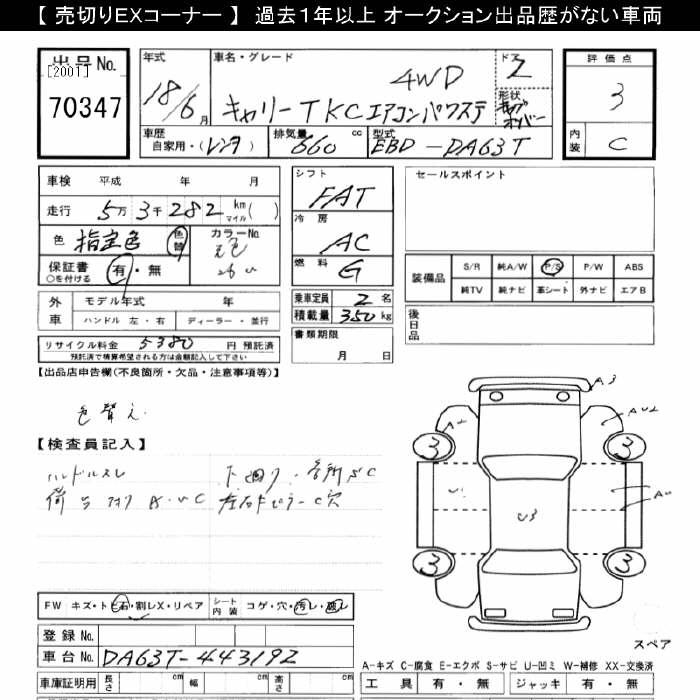 【 売切りEXコーナー 】 過去１年以上 オークション出品歴がない車両
出品No.
[2001]
70347
年式
18/6月
車名・グレード
4WD
キャリートラック KCエアコンパワステ
ドア
2
形状
評価点
3
内装
C
車歴
自家用・(レンタ)
排気量
660 cc
型式
EBD-DA63T
車検 平成 年 月
走行 5万3千282 km マイル ( )
色 指定色 色替
カラーNo.
元色
保証書 有・無
○を付ける
外車
モデル年式 年
ハンドル 左・右 ディーラー・並行
リサイクル料金 5380 円 預託済
預託済で精算希望される方は金額記入して下さい
シフト
FAT
冷房
AC
燃料
G
乗車定員 2名
積載量 350kg
書類期限
月 日
セールスポイント
装備品
S/R 純A/W P/S P/W ABS
純TV 純ナビ 革シート 外ナビ エアB
後日品
【出品店申告欄(不良箇所・欠品・注意事項等)】
色替え
【検査員記入】
ハンドルスレ 下廻り、各所SC
荷台 A・U C 左右ドピラーC穴
A3
A2
AU2
3
3
U1
U3
AU
3
3
スペア
FW キズ・ト石・割レX・リペア シート内装 コゲ・穴・汚レ・破レ
登録No.
車台No. DA63T-443192
車庫証明用 長さ cm 幅 cm 高さ cm
A-キズ C-腐食 E-エクボ S-サビ U-凹ミ W-補修 XX-交換済
工具 有・無 ジャッキ 有・無